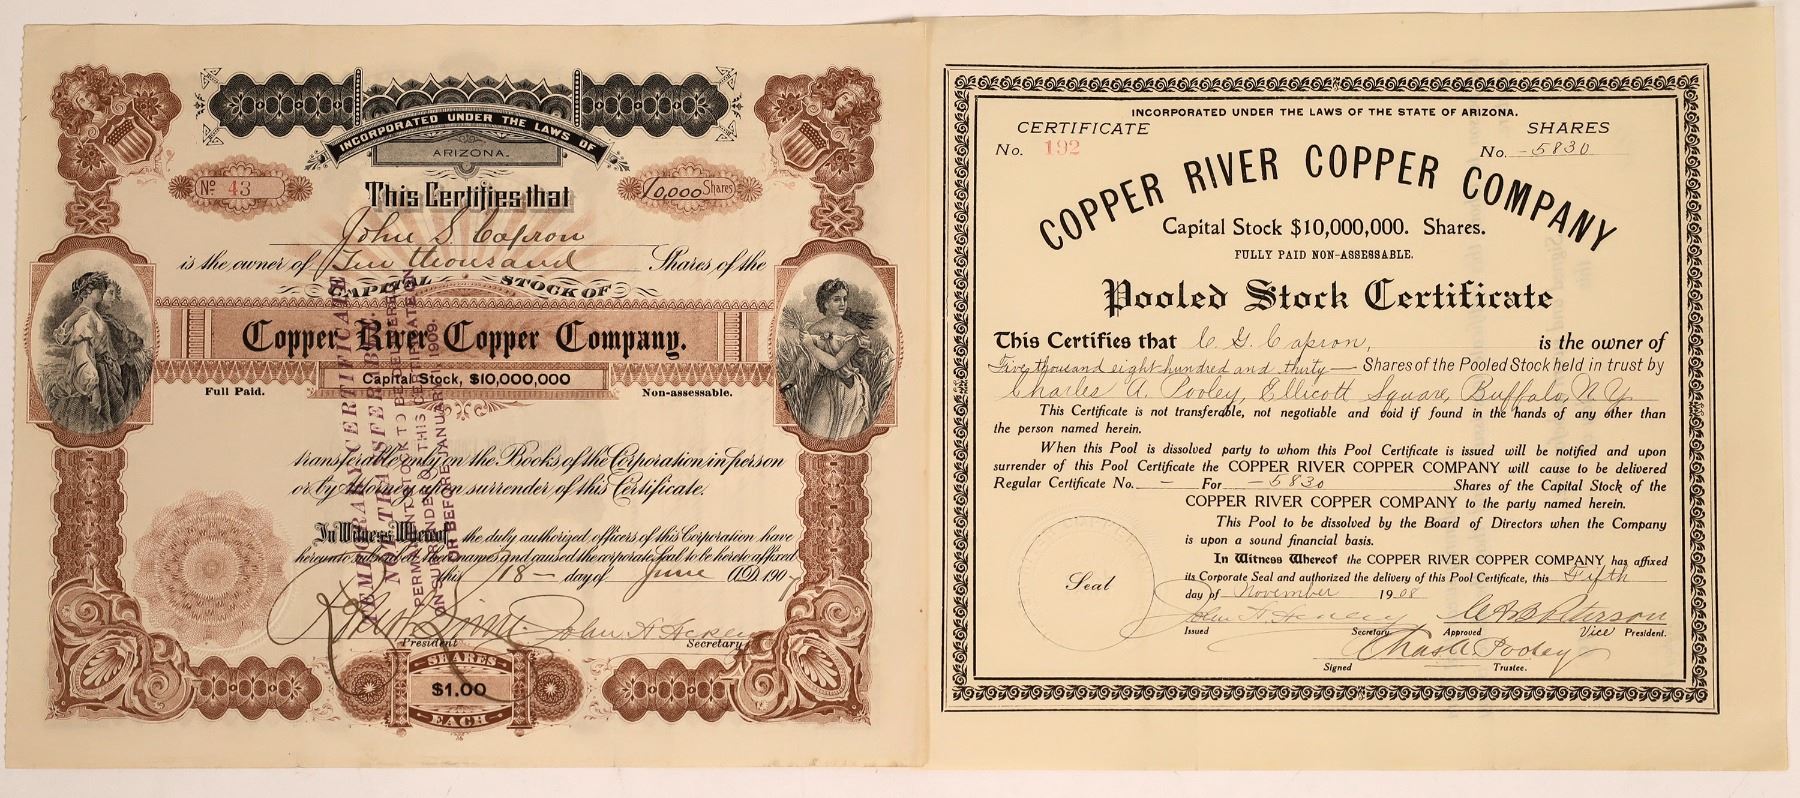 INCORPORATED UNDER THE LAWS OF
ARIZONA.
No. 43
10,000 Shares
This Certifies that
John S. Capron
is the owner of Ten thousand Shares of the
CAPITAL STOCK OF
Copper River Copper Company.
Capital Stock, $10,000,000
Full Paid.
Non-assessable.
transferable only on the Books of the Corporation in person
or by Attorney upon surrender of this Certificate.
In Witness Whereof, the duly authorized officers of this Corporation have
hereunto subscribed their names and caused the corporate Seal to be hereto affixed
this 18 - day of June A.D. 1907
President
Secretary
SHARES
$1.00
EACH
TEMPORARY CERTIFICATE
NOT TRANSFERABLE.
PERMANENT STOCK TO BE DELIVERED
ON SURRENDER OF THIS CERTIFICATE ON
OR BEFORE JANUARY 1, 1909.
INCORPORATED UNDER THE LAWS OF THE STATE OF ARIZONA.
CERTIFICATE
No. 192
SHARES
No. -5830
COPPER RIVER COPPER COMPANY
Capital Stock $10,000,000. Shares.
FULLY PAID NON-ASSESSABLE.
Pooled Stock Certificate
This Certifies that C. G. Capron, is the owner of
Five thousand eight hundred and thirty — Shares of the Pooled Stock held in trust by
Charles A. Pooley, Ellicott Square, Buffalo, N.Y.
This Certificate is not transferable, not negotiable and void if found in the hands of any other than
the person named herein.
When this Pool is dissolved party to whom this Pool Certificate is issued will be notified and upon
surrender of this Pool Certificate the COPPER RIVER COPPER COMPANY will cause to be delivered
Regular Certificate No. - For -5830 Shares of the Capital Stock of the
COPPER RIVER COPPER COMPANY to the party named herein.
This Pool to be dissolved by the Board of Directors when the Company
is upon a sound financial basis.
In Witness Whereof the COPPER RIVER COPPER COMPANY has affixed
its Corporate Seal and authorized the delivery of this Pool Certificate, this Fifth
day of November 1908
Seal
Issued Secretary
Approved Vice President.
Chas A Pooley
Signed Trustee.